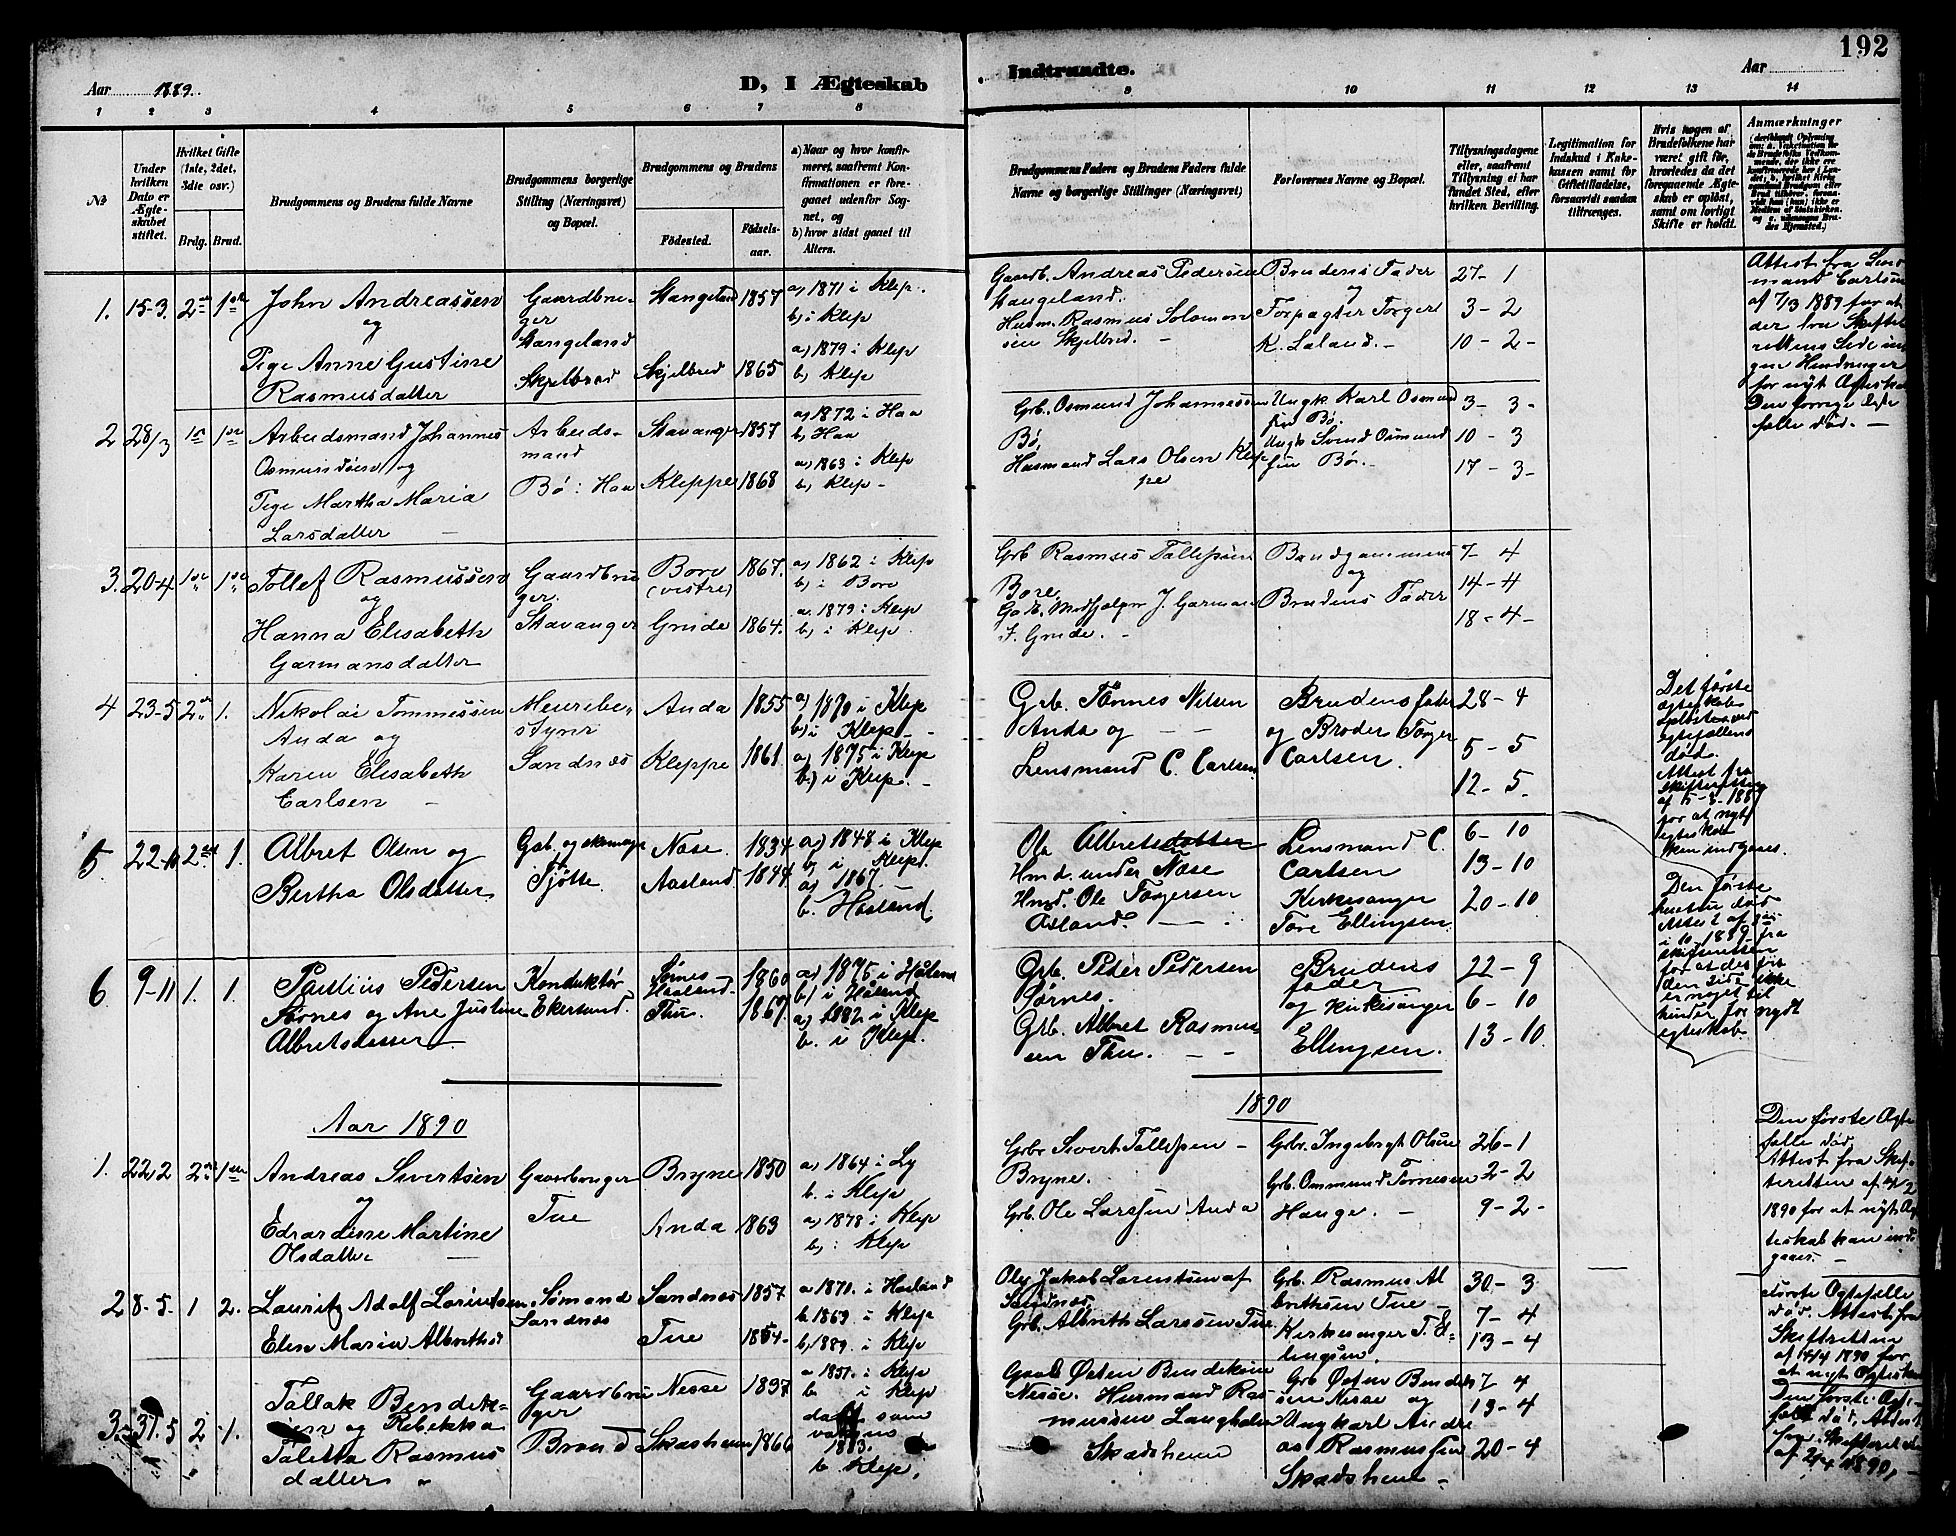 192
Aar 1889.
D, I Ægteskab
Indtraadte.
Aar
1 2 3 4 5 6 7 8 9 10 11 12 13 14
No
Under hvilken Dato er Ægteskabet stiftet.
Hvilket Gifte (1ste, 2det, 3die osv.)
Brdg. Brud.
Brudgommens og Brudens fulde Navne
Brudgommens borgerlige Stilling (Næringsvei) og Bopæl.
Brudgommens og Brudens
Födested.
Födselsaar.
a) Naar og hvor konfirmeret, saafremt Konfirmationen er foregaaet udenfor Sognet, og
b) hvor sidst gaaet til Alters.
Brudgommens Faders og Brudens Faders fulde Navne og borgerlige Stillinger (Næringsvei)
Forlovernes Navne og Bopæl.
Tillysningsdagene eller, saafremt Tillysning ei har fundet Sted, efter hvilken Bevilling.
Legitimation for Indskud i Enkekassen samt for Giftetilladelse, forsaavidt saadan tiltrænges.
Hvis nogen af Brudefolkene har været gift før, hvorledes da det foregaaende Ægteskab er opløst, samt om lovligt Skifte er holdt.
Anmærkninger
1. 15-3. 2den 1ste
John Andreassen
og
Pige Anne Gustine
Rasmusdatter
Gaardbruger
Stangeland
Skjelbred
Stangeland 1857
Skjelbred 1865
a) 1871 i Klep.
b) i Klep
a) 1879 i Klep
b) Klep
Gaardb. Andreas Pedersen
Stangeland.
Husm. Rasmus Solomonsen Skjelbred.
Brudens Fader
og
Forpagter Torger
K. Laland.
27-1
3-2
10-2-
Attest fra Lensmand Carlsen
af 7/13 1889 for at
der fra Skifterettens Side ingen Hindringer
for nyt Ægteskab
Den forrige Ægtefælle død.
2 28/3 1ste 1ste
Arbeidsmand Johannes
Osmundsen og
Pige Martha Maria
Larsdatter
Arbeidsmand
Bø i Haa
Stavanger 1857
Kleppe 1868
a) 1872 i Haa
b) Haa
a) 1863 i Klep
b) Klep
Grb. Osmund Johannessen
Bø
Husmand Lars Olsen Kleppe
Ungk. Karl Osmund
fra Bø.
Ungk Svend Osmund
fra Bø.
3-3-
10-3
17-3-
3. 20-4 1ste 1ste
Tollef Rasmussen
og
Hanna Elisabeth
Garmansdatter
Gaardbruger.
Stavanger
Bore
(vestre) 1867.
Grude 1864.
a) 1862 i Klep
b) i Bore
a. 1879 i Klep
b) i Klep.
Grb Rasmus Tallefsen
Bore.
J. Garman
Grude.
Brudgommens
og
Brudens Fader
7-4
14-4
18-4-
4 23-5 2den 1.
Nikolai Tønnessen
Anda og
Karen Elisabeth
Carlsen
Meieribestyrer
Sandnæs
Anda 1855
Kleppe 1861
a) 1870 i Klep
b) i Klep
a) 1875 i Klep
b) i Klep.
Grb. Tönnes Nilsen
Anda og
Lensmand C. Carlsen
Brudens fader
og Broder Torger
Carlsen.
28-4
5-5
12-5.
Det første
ægteskab
opløstes ved
egtefællens
død.
Attest fra
skifteretten
for at nyt
egteskab
kan indgaaes.
5 22-10 2den 1.
Albret Olsen og
Bertha Olsdatter
Grb. og skomager
Tjötte.
Næse. 1834
Aasland 1844
a) 1848 i Klep
b) i Klep.
a) 1867.
b. Høiland.
Ole Albretsdatter
Hmd. under Næse
Hmd. Ole Torgersen
Osland.
Lensmand C.
Carlsen
Kirkesanger
Tore Ellingsen
6-10
13-10
20-10
Den første
hustru død
Attest af
10 1889 fra
skifteretten
for at der fra
den side ikke
er noget til
hinder for nydt
egteskab.
6. 9-11 1. 1.
Paulius Pedersen
Sørnes og Ane Justine
Albretsdatter
Konduktør
Ekersund.
Sørnes
Haaland 1860
Thu. 1867.
a) 1875 i Håland
b) i Håland
a) 1882 i Klep
b. i Klep.
Grb. Peder Pedersen
Sørnes.
Grb. Albret Rasmussen Thu.
Brudens
fader
og kirkesanger
Ellingsen.
22-9
6-10
13-10
Aar 1890
1890
1. 22/2 2den 1ste
Andreas Sivertsen
og
Edvardine Martine
Olsdatter
Gaardbruger
Tue
Bryne 1850
Anda 1863
a) 1864 i Ly
b. i Klep
a) 1878 i Klep
b) i Klep
Grbr Sivert Tallefsen
Bryne.
Grb. Ole Larssen Anda
Grbr. Ingebregt Olsen
Grb. Ommund Tørnesen
Hauge.
26-1
2-2
9-2-
Den første Ægtefælle død
Attest fra Skifteretten af 4/2
1890 for at nyt Ægteskab kan indgaaes.
2 8-5. 1 2.
Lauritz Adolf Lorentsen
Elen Maria Albrithsd
Sømand
Sandnæs
Sandnæs 1857
Tue 1854-
a 1870. i Høiland
b 1869 i Klep
b) 1889. i Klep
Jakob Lorentsen af
Sandnæs
Grb. Albrith Larssen Tue
Grb. Rasmus Albrithsen Tue
Kirkesanger T. Ellingsen.
30-3
7-4
13-4
første Ægtefælle
død. Attest fra
Skifteretten
af 14/4 1890 for
at nyt Ægteskab
3. 31 5 2 1.
Tallak Bendiksen og Rebekka
Taletta Rasmusdatter
Gaardbruger
Braud
Nesse 1837
Skashem 1866
a 1851. i Klep
b i Klep
b. Klep.
Gaardb Østen Bendiksen
Nesse. Husmand Rasmussen Langholen
Skadsheim
Grb Østen Bendiksen Nesse og
Ungkarl Andreas Rasmussen
Skadshem
7 4
13-4
20-4
Den første Ægtefælle død, Attest
fra Skifteretten
af 2/4 1890.